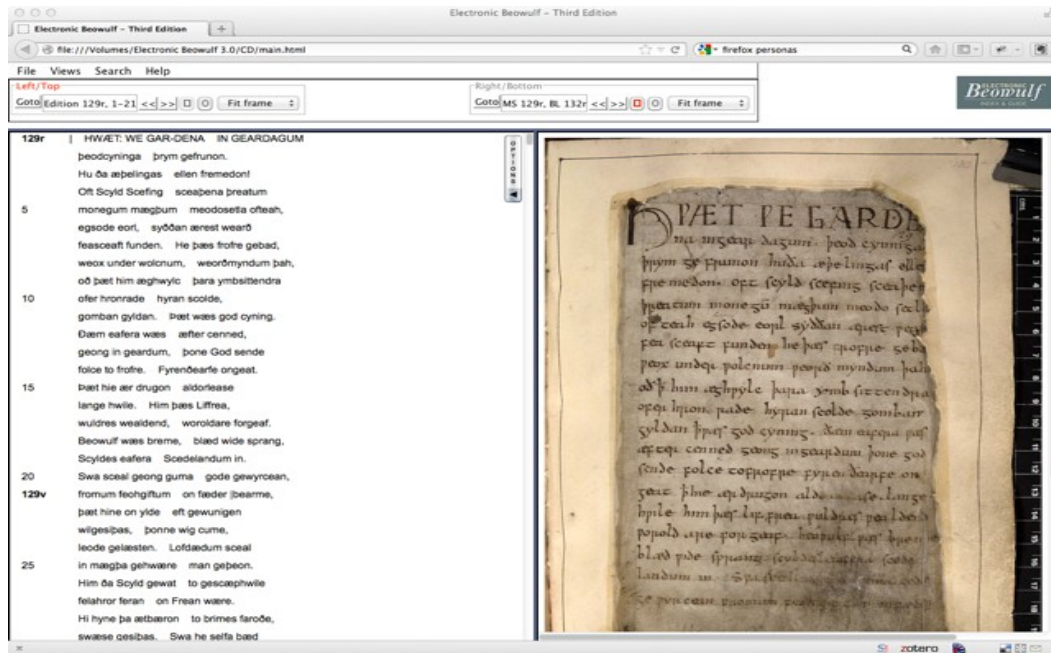 Electronic Beowulf – Third Edition
Electronic Beowulf – Third Edition
file:///Volumes/Electronic Beowulf 3.0/CD/main.html
firefox personas
File Views Search Help
Left/Top
Goto Edition 129r, 1–21 << >> Fit frame
Right/Bottom
Goto MS 129r, BL 132r << >> Fit frame
ELECTRONIC
Beowulf
INDEX & GUIDE
OPTIONS
129r | HWÆT: WE GAR-DENA IN GEARDAGUM
þeodcyninga þrym gefrunon.
Hu ða æþelingas ellen fremedon!
Oft Scyld Scefing sceaþena þreatum
5 monegum mægþum meodosetla ofteah,
egsode eorl, syððan ærest wearð
feasceaft funden. He þæs frofre gebad,
weox under wolcnum, weorðmyndum þah,
oð þæt him æghwylc þara ymbsittendra
10 ofer hronrade hyran scolde,
gomban gyldan. Þæt wæs god cyning.
Ðæm eafera wæs æfter cenned,
geong in geardum, þone God sende
folce to frofre. Fyrenðearfe ongeat.
15 Þæt hie ær drugon aldorlease
lange hwile. Him þæs Liffrea,
wuldres wealdend, woroldare forgeaf.
Beowulf wæs breme, blæd wide sprang,
Scyldes eafera Scedelandum in.
20 Swa sceal geong guma gode gewyrcean,
129v fromum feohgiftum on fæder |bearme,
þæt hine on ylde eft gewunigen
wilgesiþas, þonne wig cume,
leode gelæsten. Lofdædum sceal
25 in mægþa gehwære man geþeon.
Him ða Scyld gewat to gescæphwile
felahror feran on Frean wære.
Hi hyne þa ætbæron to brimes faroðe,
swæse gesiþas. Swa he selfa bæd
HǷÆT ǷE GARDE
na ingear dagum. þeod cyninga
þrym ge frunon huða æþelingas elle
fre medon. oft scyld scefing sceaþe
þreatum monegū mægþum meodo setl
of teah egsode eorl syððan ærest ƿear
fea sceaft funden he þæs frofre geba
ƿeox under ƿolcnum ƿeorð myndum þah
oðþ him æghƿylc þara ymb sittendra
ofer hron rade hyran scolde gomban
gyldan þæt ƿæs god cyning. ðæm eafera ƿæs
æfter cenned geong ingeardum þone god
sende folce tofrofre fyren ðearfe on
geat þhie ær drugon aldor ase. lange
hƿile him þæs lif frea ƿuldres ƿealdend
ƿorold are for geaf. beoƿulf ƿæs breme
blæd ƿide sprang scyldes eafera scede
landum in.
zotero